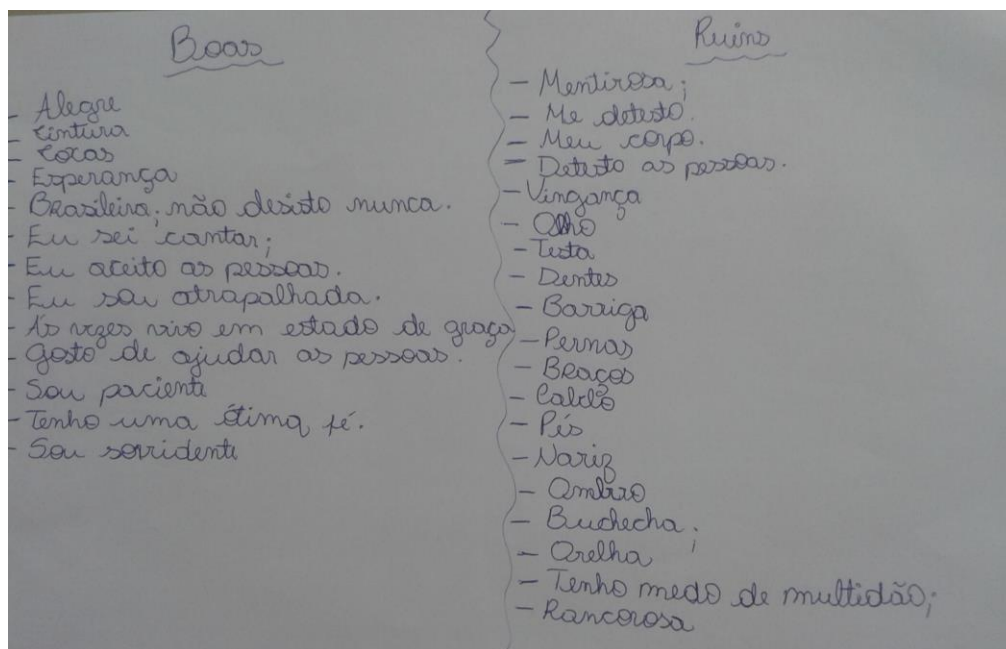 Boas
- Alegre
- Cintura
- Coxas
- Esperança
- Brasileira; não desisto nunca.
- Eu sei cantar;
- Eu aceito as pessoas.
- Eu sou atrapalhada.
- Às vezes vivo em estado de graça
- Gosto de ajudar as pessoas.
- Sou paciente
- Tenho uma ótima fé.
- Sou sorridente
Ruins
- Mentirosa;
- Me detesto.
- Meu corpo.
- Detesto as pessoas.
- Vingança
- Olho
- Testa
- Dentes
- Barriga
- Pernas
- Braços
- Cabelo
- Pés
- Nariz
- Ombro
- Buchecha;
- Orelha
- Tenho medo de multidão;
- Rancorosa